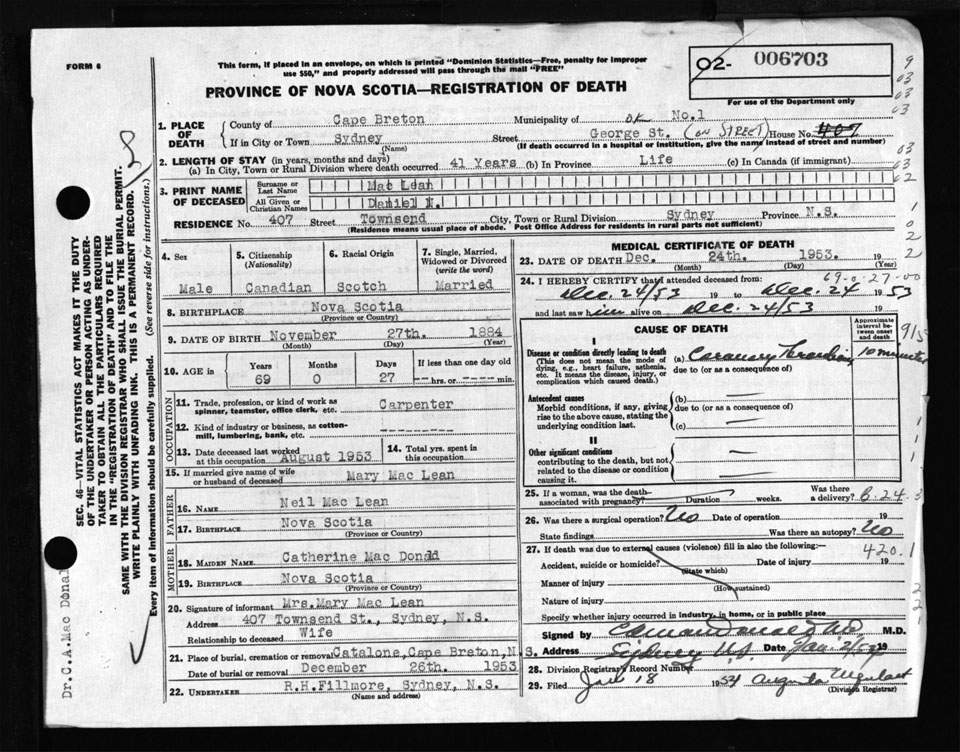 FORM 6
This form, if placed in an envelope, on which is printed "Dominion Statistics—Free, penalty for improper
use $50," and properly addressed will pass through the mail "FREE"
PROVINCE OF NOVA SCOTIA—REGISTRATION OF DEATH
02- 006703
For use of the Department only
1. PLACE OF DEATH
County of Cape Breton Municipality of OK No.1
If in City or Town Sydney Street George St. (ON STREET) House No. 407
(Name) (If death occurred in a hospital or institution, give the name instead of street and number)
2. LENGTH OF STAY (in years, months and days)
(a) In City, Town or Rural Division where death occurred 41 Years (b) In Province Life (c) In Canada (if immigrant)
3. PRINT NAME OF DECEASED
Surname or Last Name Mac Lean
All Given or Christian Names Daniel N.
RESIDENCE No. 407 Street Townsend City, Town or Rural Division Sydney Province N.S.
(Residence means usual place of abode. Post Office Address for residents in rural parts not sufficient)
4. Sex Male
5. Citizenship (Nationality) Canadian
6. Racial Origin Scotch
7. Single, Married, Widowed or Divorced (write the word) Married
8. BIRTHPLACE Nova Scotia
(Province or Country)
9. DATE OF BIRTH November 27th. 1884
(Month) (Day) (Year)
10. AGE in Years 69 Months 0 Days 27 If less than one day old --- hrs. or --- min.
OCCUPATION
11. Trade, profession, or kind of work as spinner, teamster, office clerk, etc. Carpenter
12. Kind of industry or business, as cotton-mill, lumbering, bank, etc. --------
13. Date deceased last worked at this occupation August 1953
14. Total yrs. spent in this occupation
15. If married give name of wife or husband of deceased Mary Mac Lean
FATHER
16. NAME Neil Mac Lean
17. BIRTHPLACE Nova Scotia
(Province or Country)
MOTHER
18. MAIDEN NAME Catherine Mac Donald
19. BIRTHPLACE Nova Scotia
(Province or Country)
20. Signature of informant Mrs.Mary Mac Lean
Address 407 Townsend St., Sydney, N.S.
Relationship to deceased Wife
21. Place of burial, cremation or removal Catalone,Cape Breton,N.S.
Date of burial or removal December 26th. 1953
22. UNDERTAKER R.H.Fillmore, Sydney, N.S.
(Name and address)
MEDICAL CERTIFICATE OF DEATH
23. DATE OF DEATH Dec. 24th. 1953. 19
(Month) (Day) (Year)
69-0-27-00
24. I HEREBY CERTIFY that I attended deceased from:
Dec. 24/53 19 to Dec. 24 1953
and last saw him alive on Dec. 24/53 19
CAUSE OF DEATH
Approximate interval between onset and death
I
Disease or condition directly leading to death (a) Coronary Thrombosis 10 minutes
(This does not mean the mode of dying, e.g., heart failure, asthenia, etc. It means the disease, injury, or complication which caused death.)
due to (or as a consequence of)
Antecedent causes (b)
Morbid conditions, if any, giving rise to the above cause, stating the underlying condition last.
due to (or as a consequence of)
(c)
II
Other significant conditions
contributing to the death, but not related to the disease or condition causing it.
25. If a woman, was the death associated with pregnancy? Duration weeks. Was there a delivery? B-24
26. Was there a surgical operation? No Date of operation 19
State findings Was there an autopsy? No
27. If death was due to external causes (violence) fill in also the following:— 420.1
Accident, suicide or homicide? Date of injury 19
(State which)
Manner of injury
(How sustained)
Nature of injury
Specify whether injury occurred in industry, in home, or in public place
Signed by M.D.
Address Sydney N.S. Date Jan. 2/54 19
28. Division Registrar's Record Number
29. Filed Jan 18 1954
(Division Registrar)
SEC. 46—VITAL STATISTICS ACT MAKES IT THE DUTY
OF THE UNDERTAKER OR PERSON ACTING AS UNDER-
TAKER TO OBTAIN ALL THE PARTICULARS REQUIRED
IN THE "REGISTRATION OF DEATH" AND TO FILE THE
SAME WITH THE DIVISION REGISTRAR WHO SHALL ISSUE THE BURIAL PERMIT.
WRITE PLAINLY WITH UNFADING INK. THIS IS A PERMANENT RECORD.
Every item of information should be carefully supplied. (See reverse side for instructions.)
Dr. C.A.Mac Donal